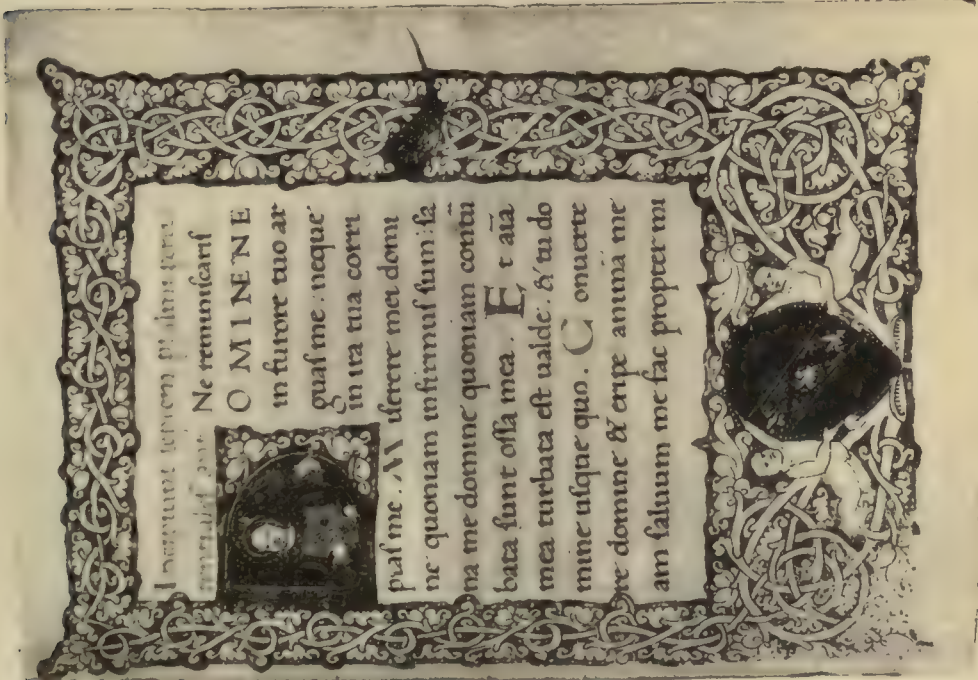 Incipiunt septem ps
Ne reminiscaris
OMINE NE
in furore tuo ar
guas me: neque
in ira tua corri
pias me. Miserere mei domi
ne quoniam infirmus sum: sa
na me domine quoniam contū
bata sunt ossa mea. Et aīa
mea turbata est ualde: & tu do
mine usque quo. Conuerte
re domine & eripe animā me
am saluum me fac propter mi